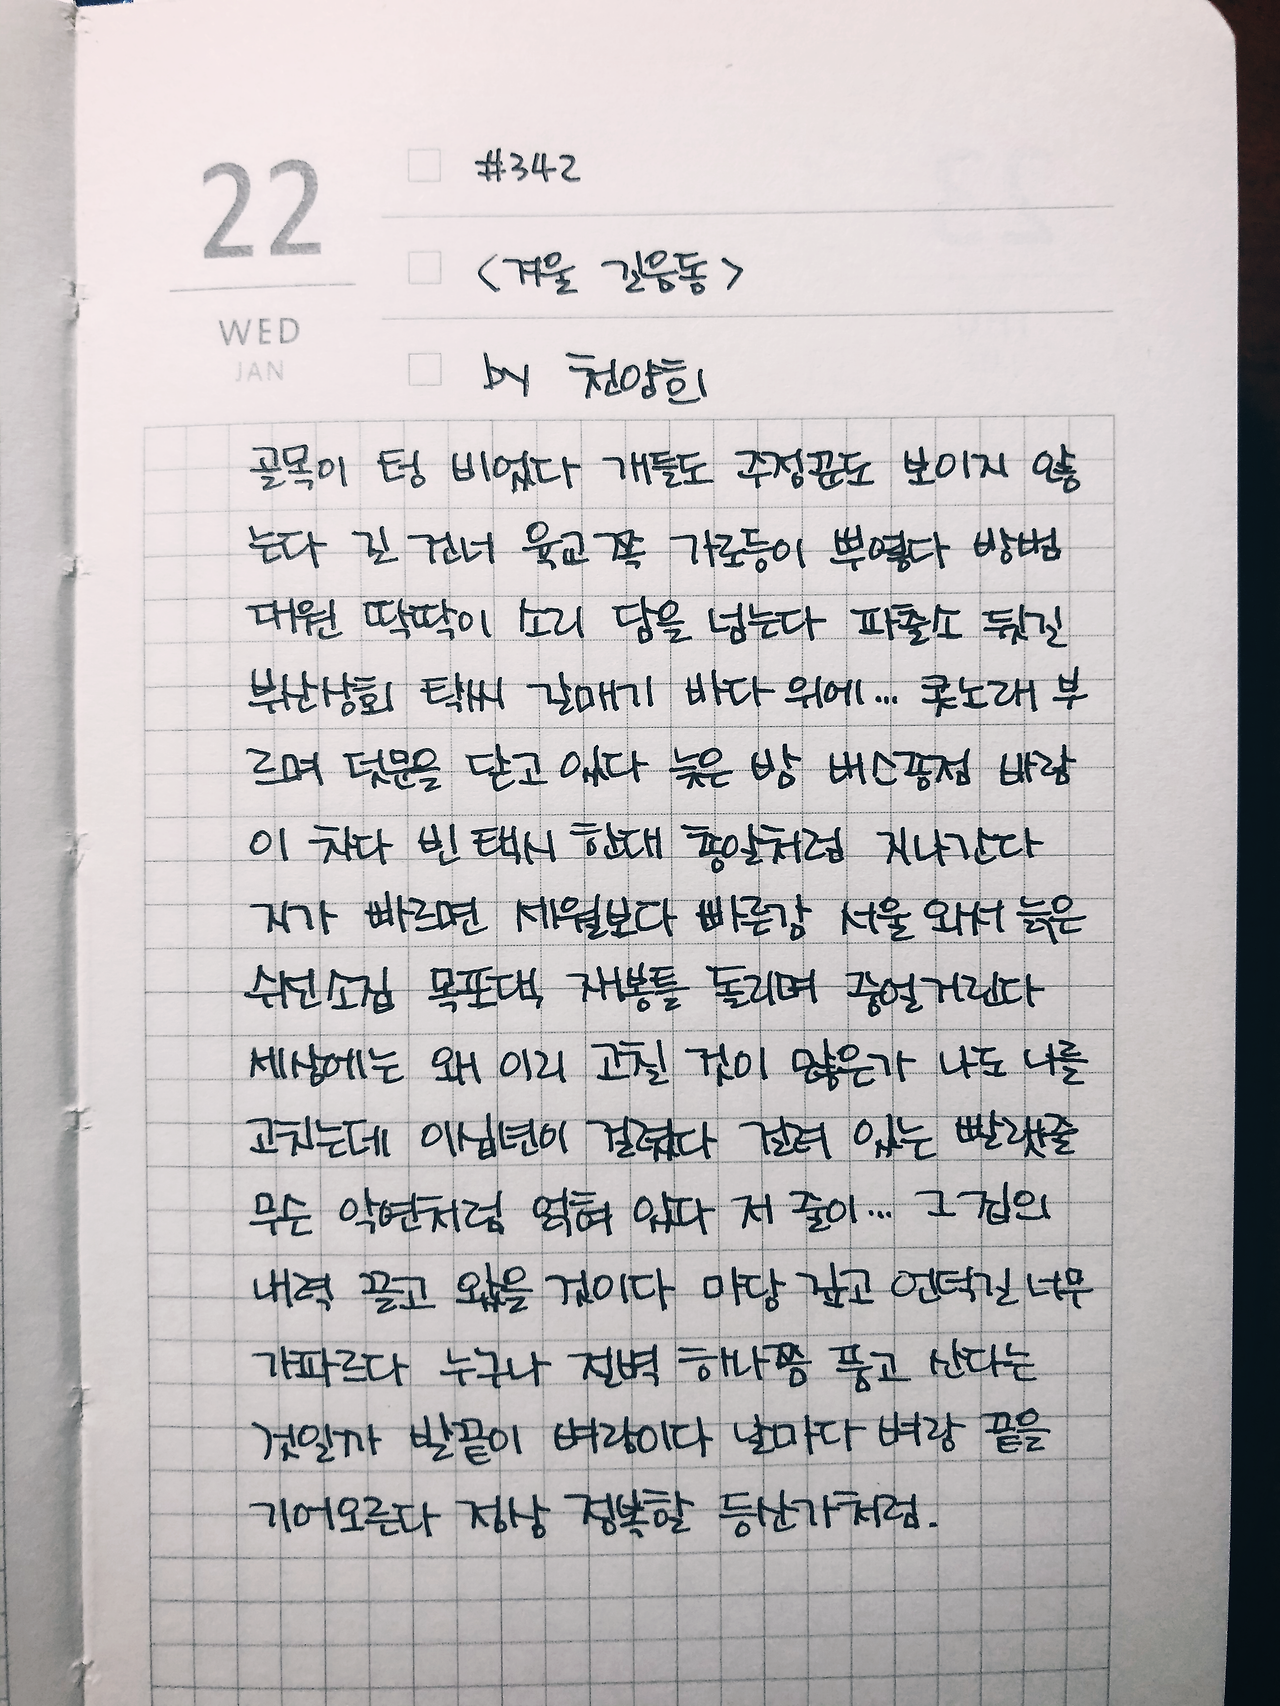 22
WED
JAN
#342
<겨울 길음동>
by 천양희
골목이 텅 비었다 개들도 주정꾼도 보이지 않
는다 길 건너 육교 쪽 가로등이 뿌옇다 방범
대원 딱딱이 소리 담을 넘는다 파출소 뒷길
부산상회 탁씨 갈매기 바다 위에... 콧노래 부
르며 덧문을 닫고 있다 늦은 밤 버스종점 바람
이 차다 빈 택시 한대 총알처럼 지나간다
지가 빠르면 세월보다 빠른감 서울 와서 늙은
쉬인소집 목포댁 재봉틀 돌리며 중얼거린다
세상에는 왜 이리 고칠 것이 많은가 나도 나를
고치는데 이십년이 걸렸다 걸려 있는 빨랫줄
무슨 악연처럼 얽혀 있다 저 줄이... 그 집의
내력 끌고 왔을 것이다 마당 깊고 언덕길 너무
가파르다 누구나 절벽 하나쯤 품고 산다는
것일까 발끝이 벼랑이다 날마다 벼랑 끝을
기어오른다 정상 정복할 등산가처럼.